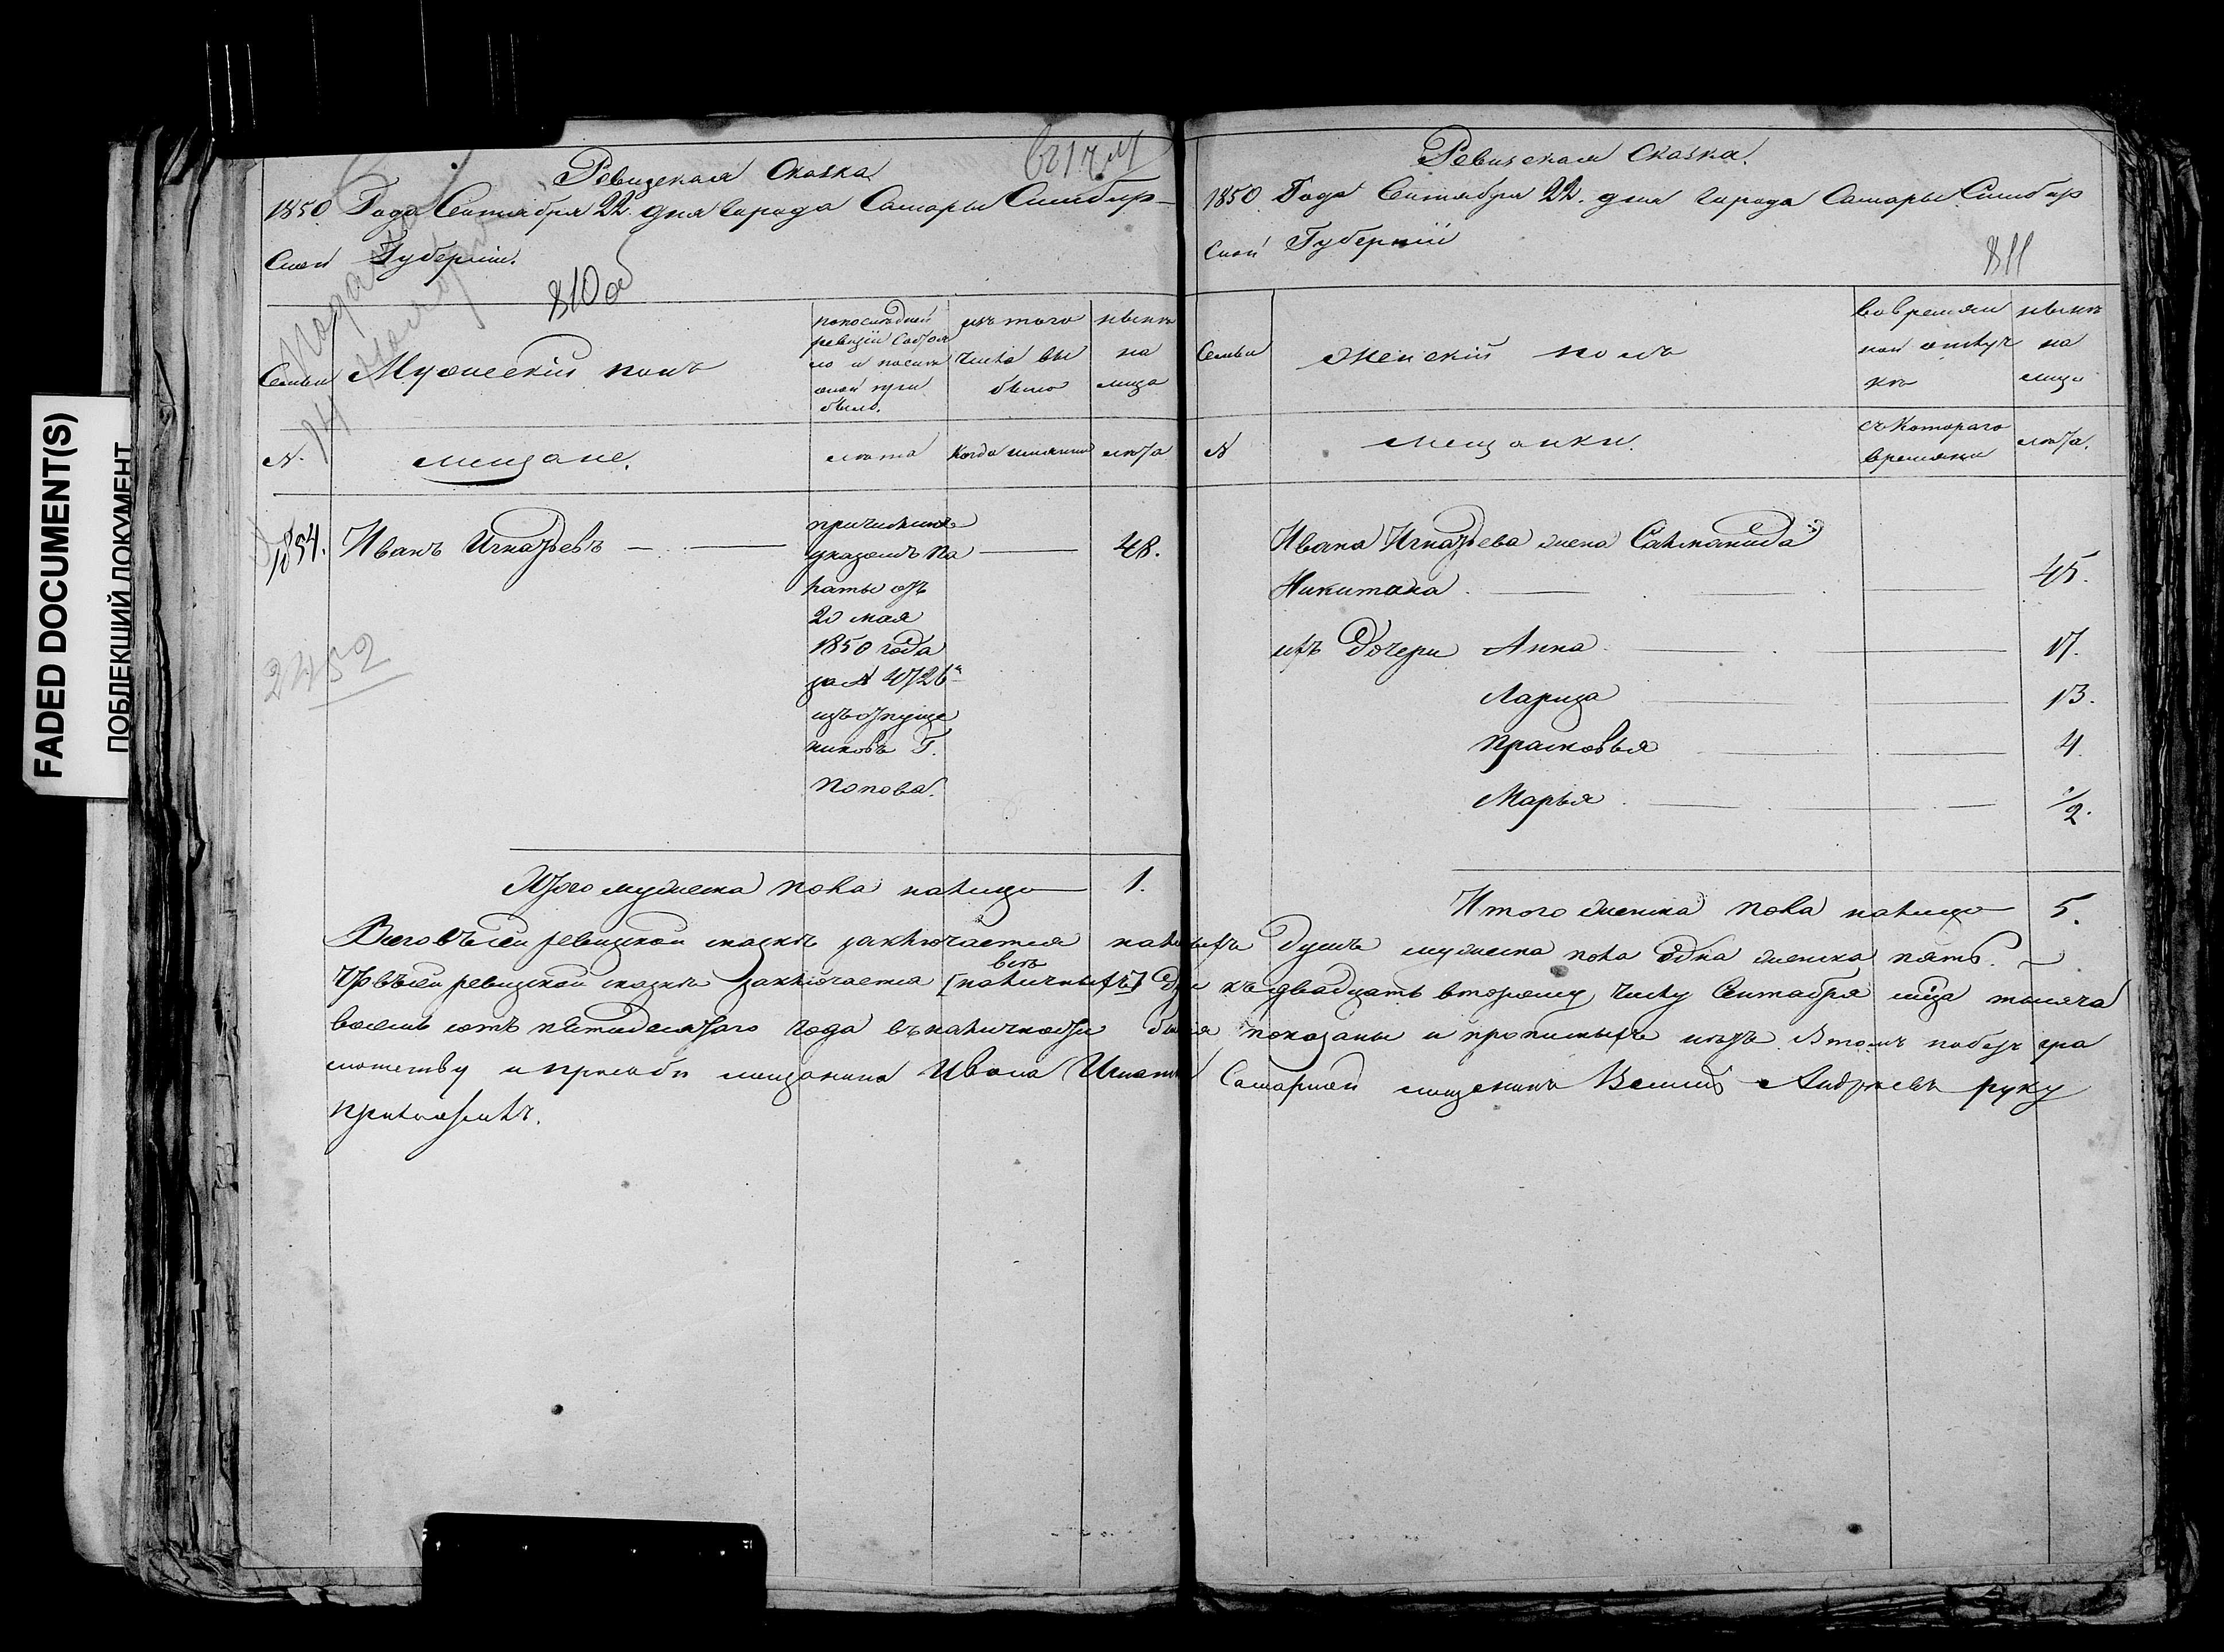 FADED DOCUMENT(S)
ПОБЛЕКШИЙ ДОКУМЕНТ
Ревизская Сказка
1850 Года Сентября 22. дня города Самары Симбир-
ской Губернии.
810 об
Семьи
Мужеский полъ
по последней ревизии состояло и после оной прибыло.
изъ того числа выбыло
ныне на лицо
№
мещане.
лета
Когда именно
лета
1854. Иванъ Игнатьевъ 48.
причисленъ
указомъ Па
латы отъ
20 мая
1850 года
за № 4726
изъ отпуще
никовъ Г.
Попова.
Итого мужеска пола налицо 1.
Ревизская Сказка.
1850 Года Сентября 22. дня города Самары Симбир
ской Губернии
811
Семьи
Женский полъ
во временной отлучке
ныне на лицо
№
мещанки.
съ котораго времяни
лета.
Ивана Игнатьева жена Саломанида
Никитина 45.
ихъ Дочери Анна 17.
Лариза 13.
Прасковья 4.
Марья 1/2.
Итого женска пола налицо 5.
Всего въ сей ревизской сказке заключается наличныхъ Душъ мужеска пола Одна женска пять.
Что въ сей ревизской сказке заключается [наличныхъ] все къ двадцать второму числу Сентября м͠ца тысяча
восемь сотъ пятидесятаго года въ наличности были показаны и прописныхъ нетъ В томъ по безгра
мотству и прозьбе мещанина Ивана Игнатьева Самарской мещанинъ Андреевъ руку
приложилъ.